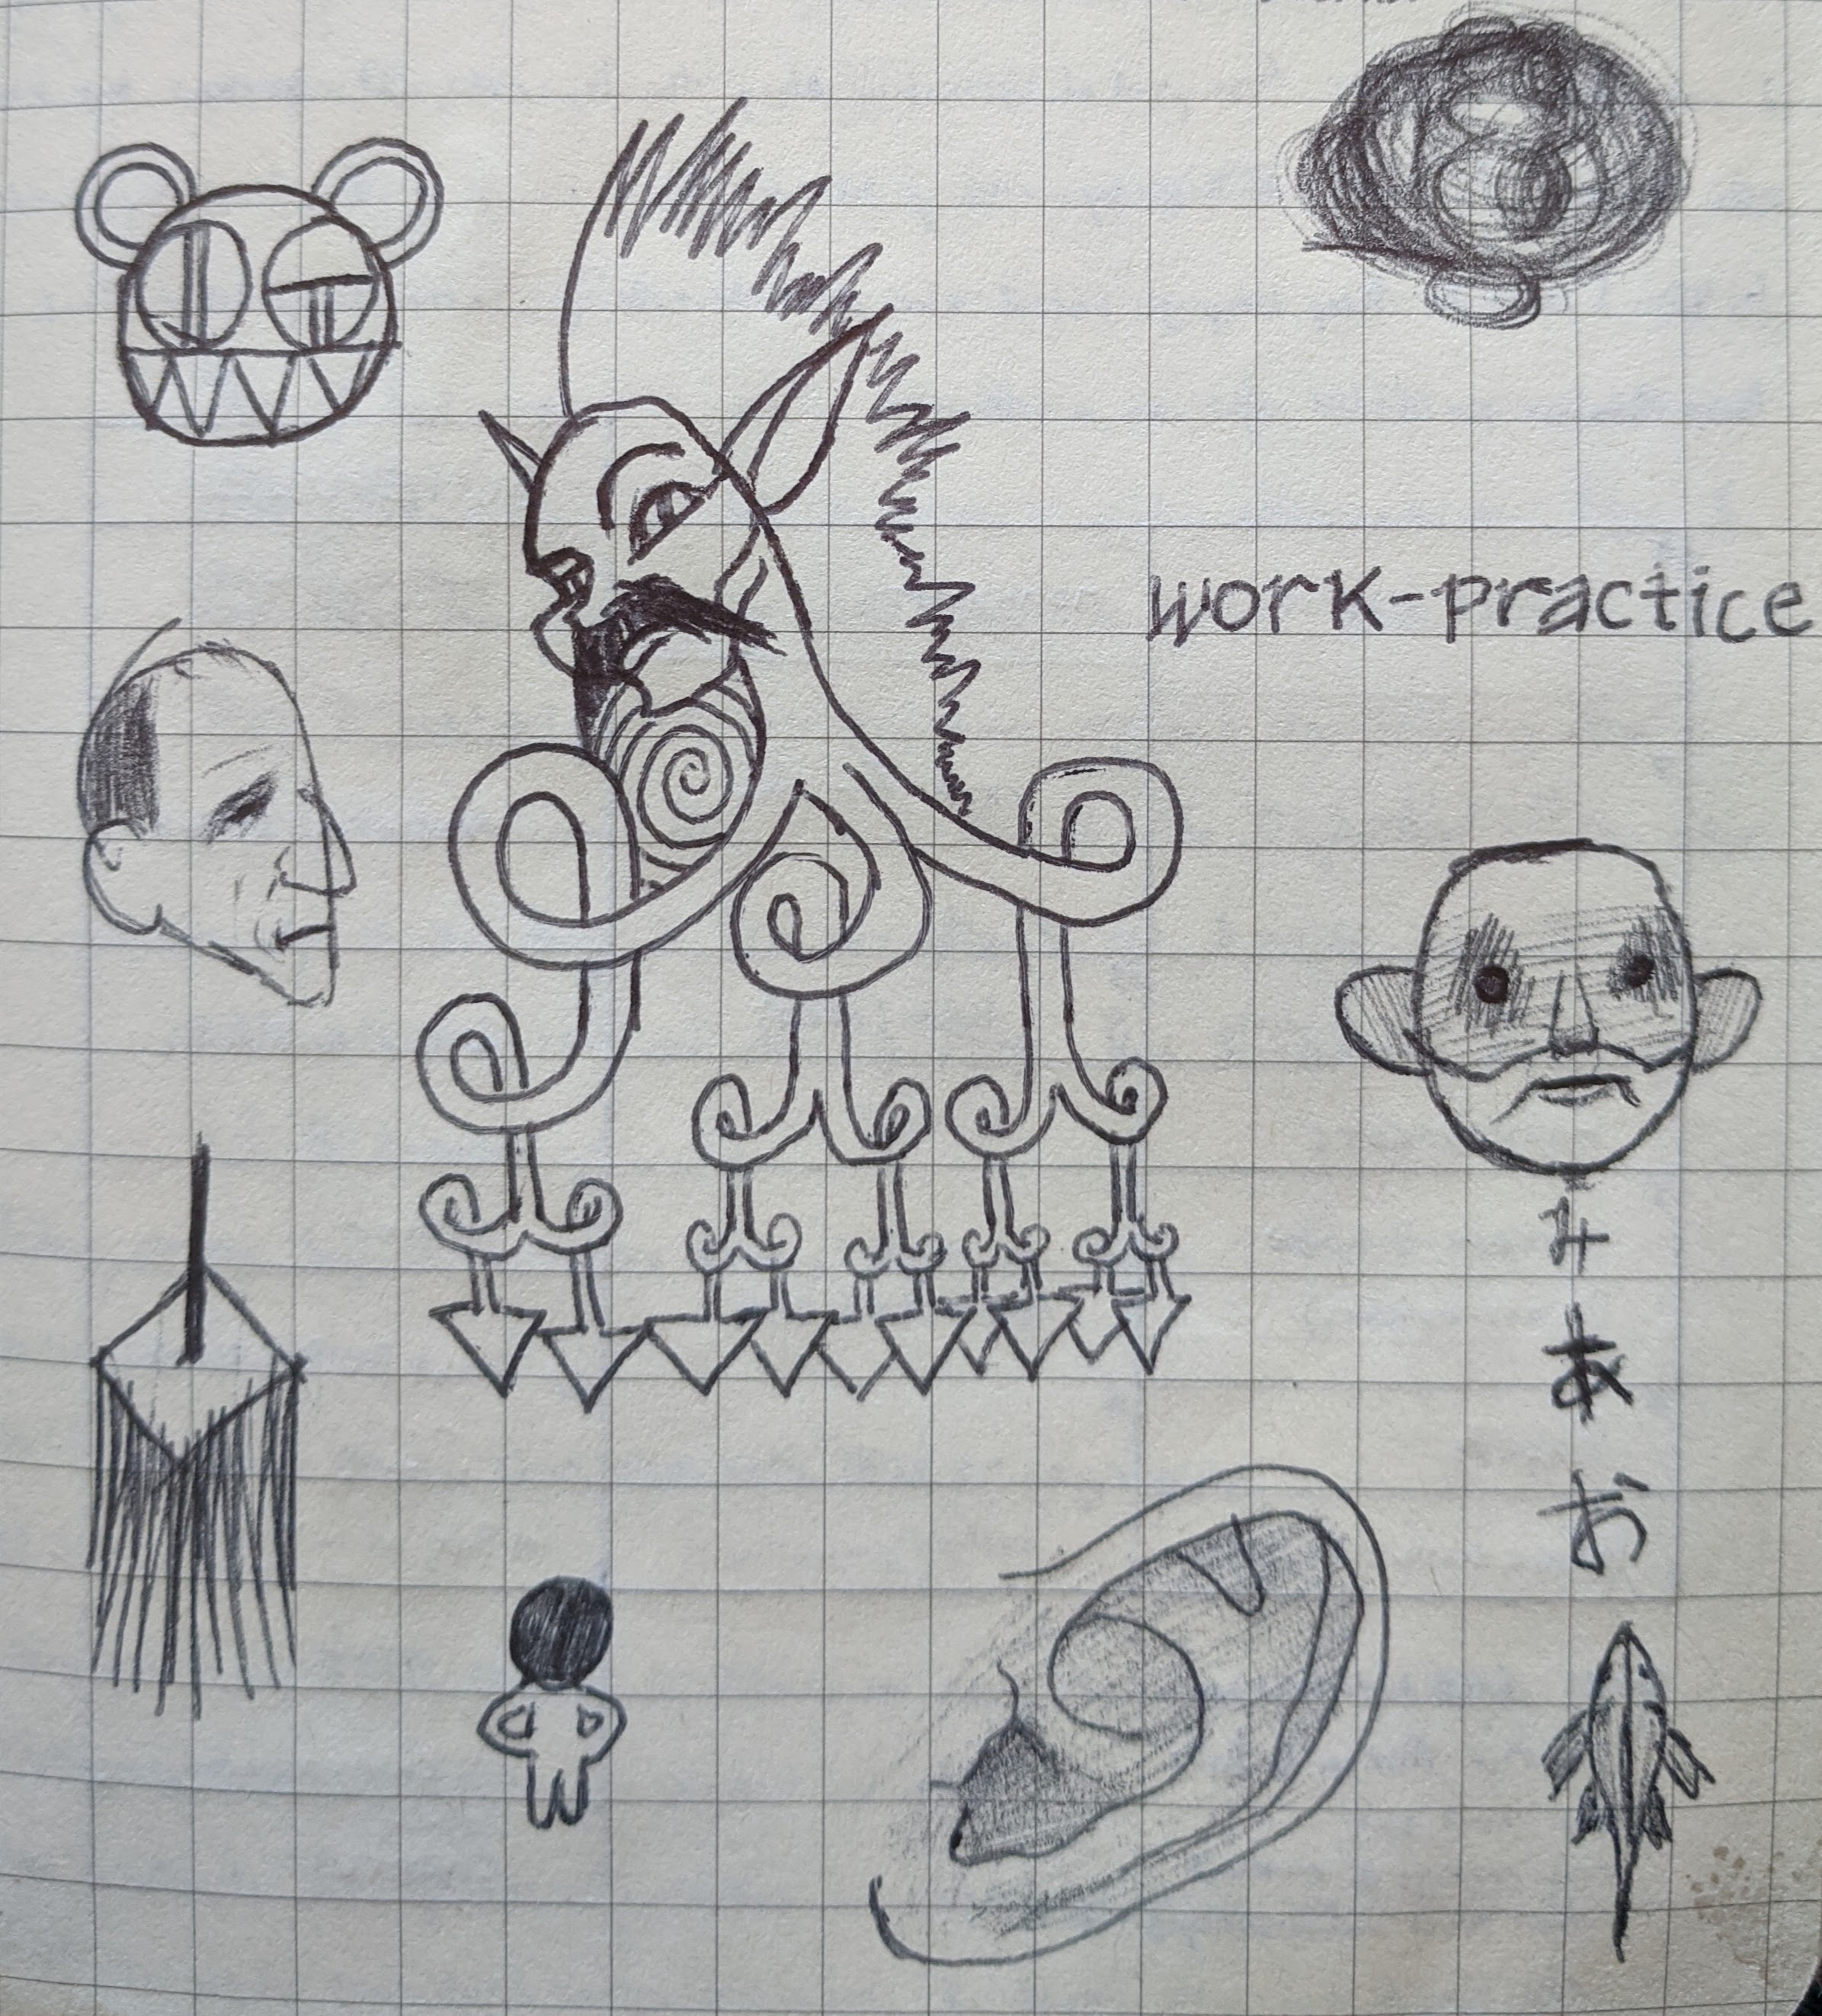 work-practice
み
あ
お